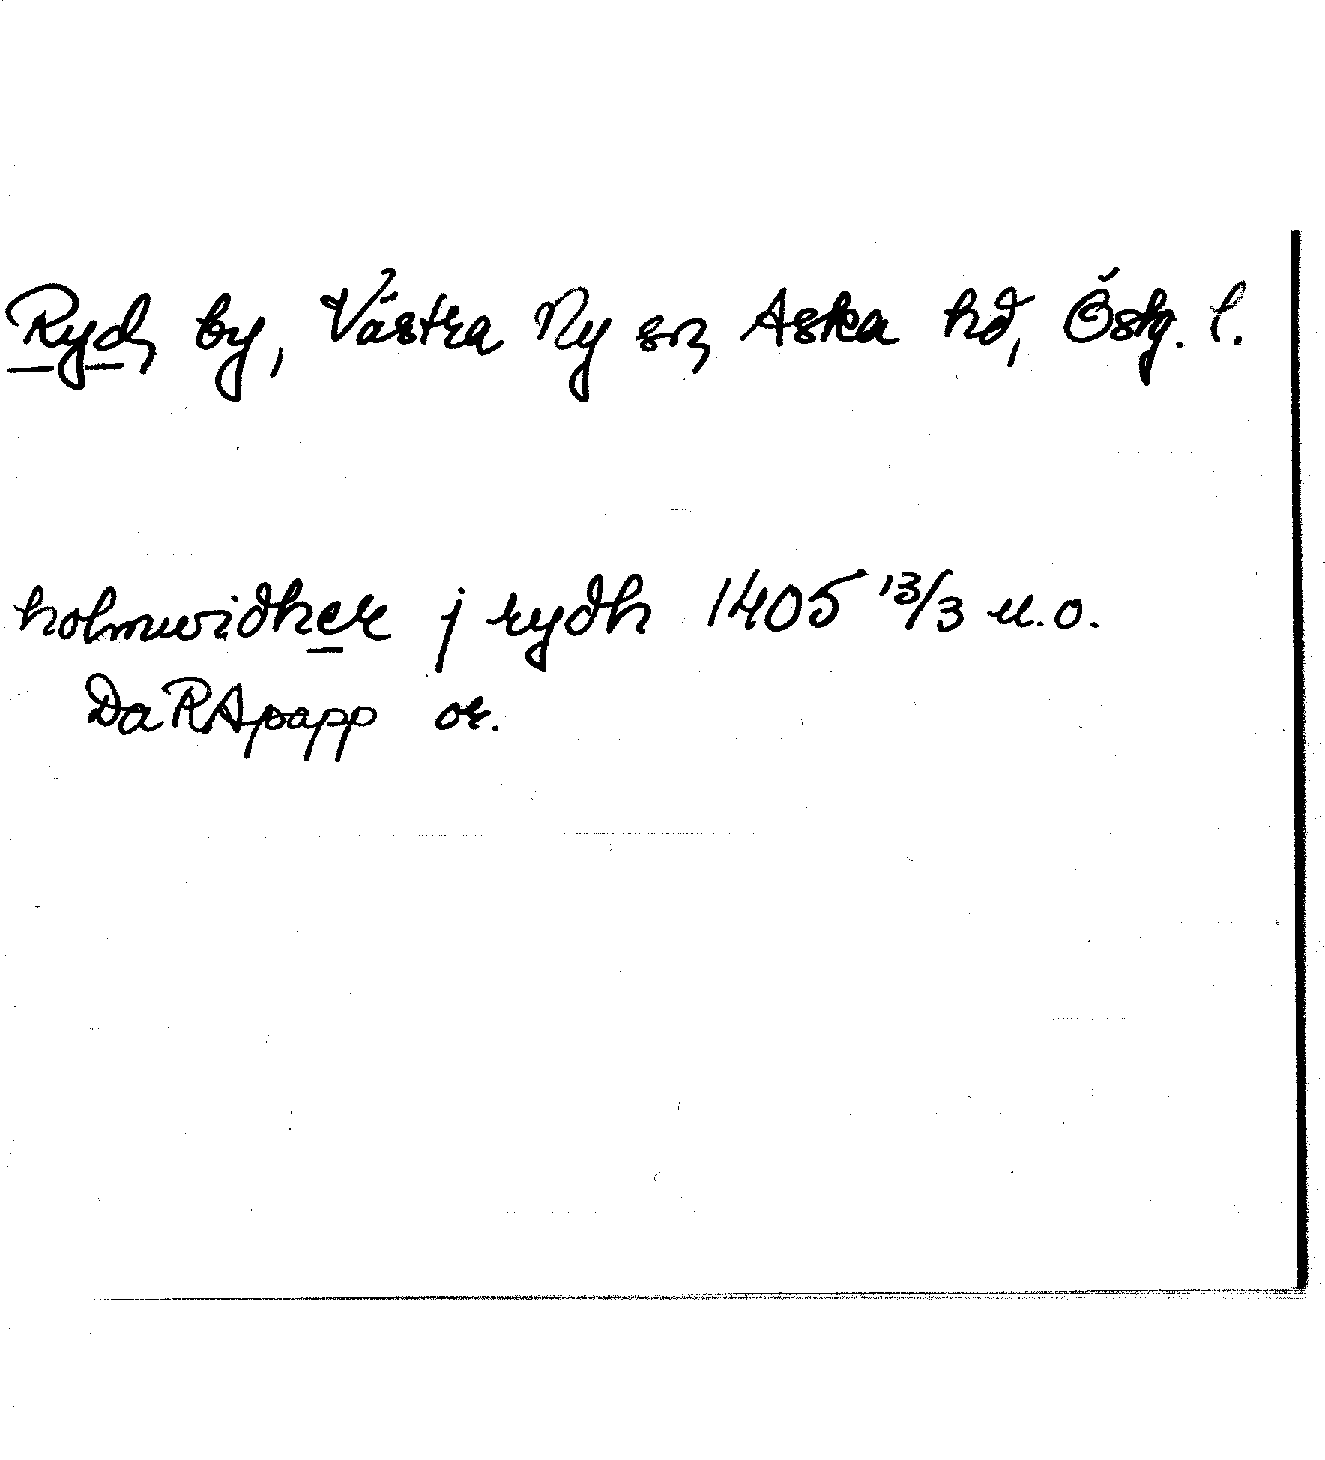 Ryd, by, Västra Ny sn, Aska hd, Östg. l.
holmwidher j rydh 1405 13/3 u.o.
Da RApapp or.